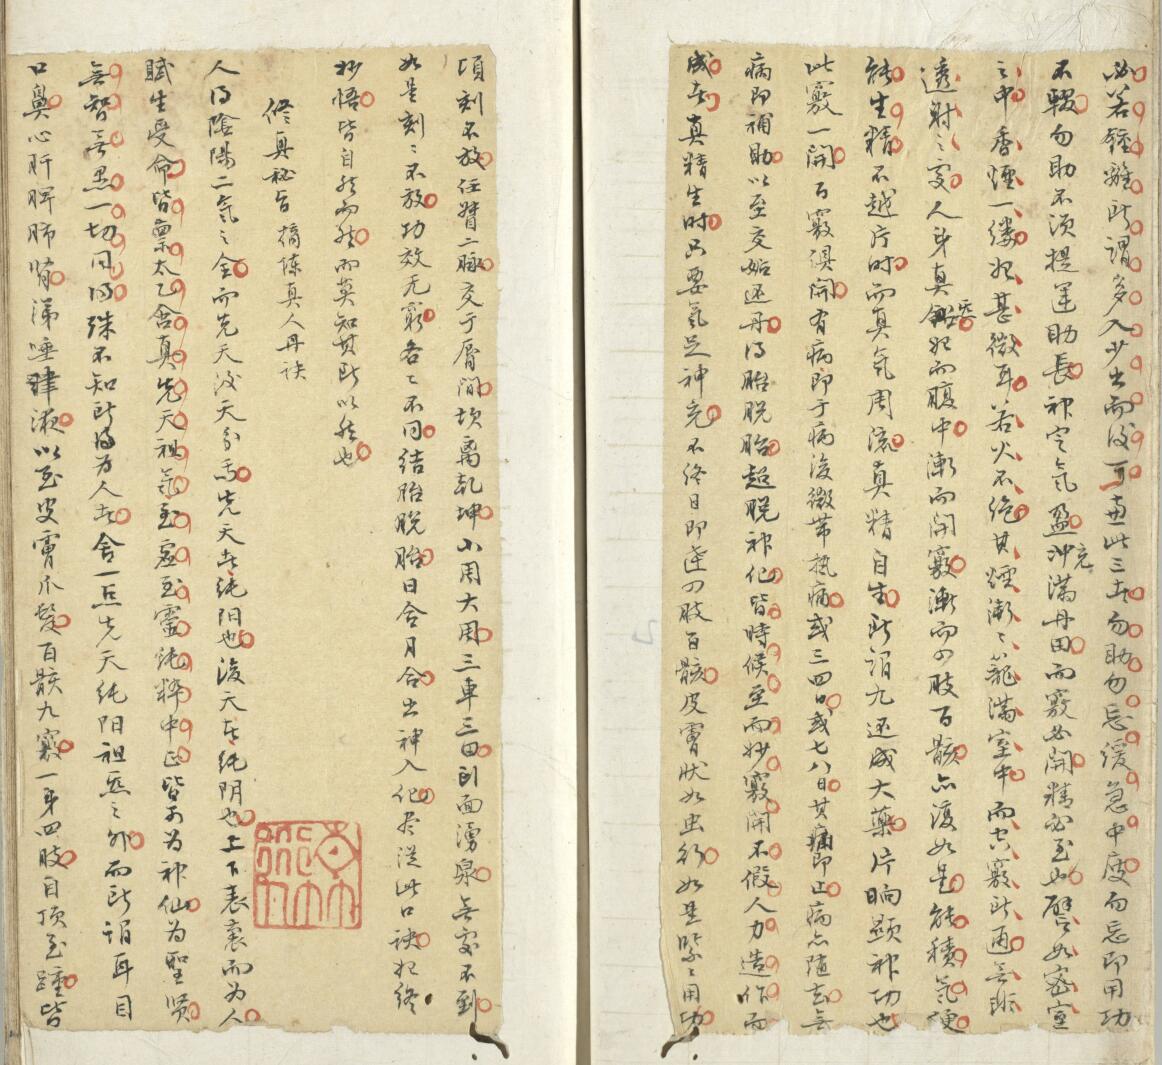 必若鍾離所謂多入少出而後可盡此三者勿助勿忘緩急中度勿忘即用功
不輟勿助不須提運助長神定氣盈沖充滿丹田而竅必開精必至也譬如密室
之中香煙一縷起甚微耳若火不絶其煙漸漸籠滿室中而空竅所通無非
透射之處人身真炁起而腹中漸而開竅漸而四肢百骸亦復如是能積氣便
能生精不越片時而真氣周流真精自生所謂九還成大藥片晌顯神功也
此竅一開百竅俱開有病即于病後微帶熱痛或三四日或七八日其痛即止病亦隨去無
病即補助以至交媾還丹得胎脱胎超脱神化皆時候至而妙竅開不假人力造作而
成者真精生時只要氣足神充不終日即達四肢百骸皮膚狀如虫行如是緊緊用功
頃刻不放任督二脈交于唇間坎离乾坤小周大周三車三田卽面湧泉無處不到
如是刻刻不放功效无窮各各不同結胎脱胎日合月合出神入化尽從此口訣起終
妙悟皆自然而然而莫知其所以然也
修真秘旨 摘陳真人丹訣
人得陰陽二氣之全而先天後天分焉先天者純阳也後天者純阴也上下表裏而为人
賦生受命皆稟太乙含真先天祖氣至虛至靈純粹中正皆可为神仙为聖贤
無智無愚一切同得殊不知所得为人者舍一点先天純阳祖炁之外而所谓耳目
口鼻心肝脾肺腎涕唾津液以至皮膚爪髮百骸九竅一身四肢自頂至踵皆